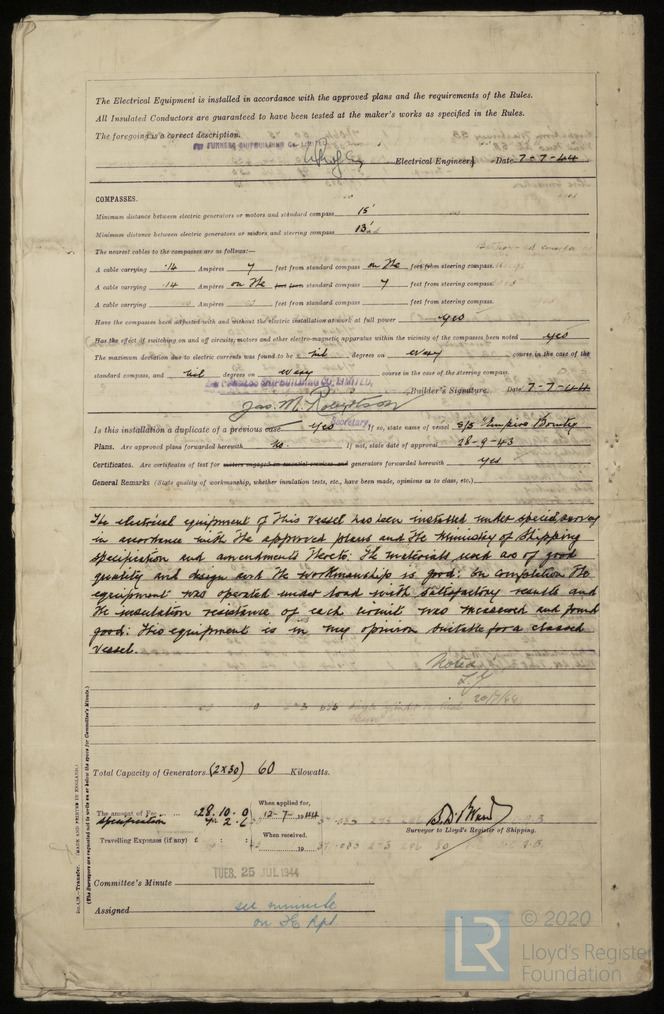 The Electrical Equipment is installed in accordance with the approved plans and the requirements of the Rules.
All Insulated Conductors are guaranteed to have been tested at the maker's works as specified in the Rules.
The foregoing is a correct description.
FOR FURNESS SHIPBUILDING CO. LIMITED
Electrical Engineers Date 7-7-44
COMPASSES.
Minimum distance between electric generators or motors and standard compass 15'
Minimum distance between electric generators or motors and steering compass 13'
The nearest cables to the compasses are as follows:—
A cable carrying .14 Ampères 7 feet from standard compass on the feet from steering compass.
A cable carrying .14 Ampères on the feet from standard compass 7 feet from steering compass.
A cable carrying Ampères feet from standard compass feet from steering compass.
Have the compasses been adjusted with and without the electric installation at work at full power yes
Has the effect of switching on and off circuits, motors and other electro-magnetic apparatus within the vicinity of the compasses been noted yes
The maximum deviation due to electric currents was found to be nil degrees on every course in the case of the
standard compass, and nil degrees on every course in the case of the steering compass.
FURNESS SHIPBUILDING CO. LIMITED,
Jas. M. Robertson Builder's Signature. Date 7-7-44
Secretary
Is this installation a duplicate of a previous case yes If so, state name of vessel S/S "Empire Bounty
Plans. Are approved plans forwarded herewith no. If not, state date of approval 28-9-43
Certificates. Are certificates of test for motors engaged on essential services and generators forwarded herewith yes
General Remarks (State quality of workmanship, whether insulation tests, etc., have been made, opinions as to class, etc.)
The electrical equipment of this vessel has been installed under special survey
in accordance with the approved plans and the Ministry of Shipping
specification and amendments thereto. The materials used are of good
quality and design and the workmanship is good. On completion the
equipment was operated under load with satisfactory results and
the insulation resistance of each circuit was measured and found
good. This equipment is in my opinion suitable for a classed
vessel.
Noted
20/7/44
Total Capacity of Generators (2x30) 60 Kilowatts.
The amount of Fee £28.10.0 When applied for, 12-7-1944
specification 2.6
Travelling Expenses (if any) £ When received. 19
B.D. Ward
Surveyor to Lloyd's Register of Shipping.
Committee's Minute TUES. 25 JUL 1944
Assigned see minute
on F.E. Rpt
(MADE AND PRINTED IN ENGLAND.)
(The Surveyors are requested not to write on or below the space for Committee's Minute.)
LR © 2020
Lloyd's Register
Foundation